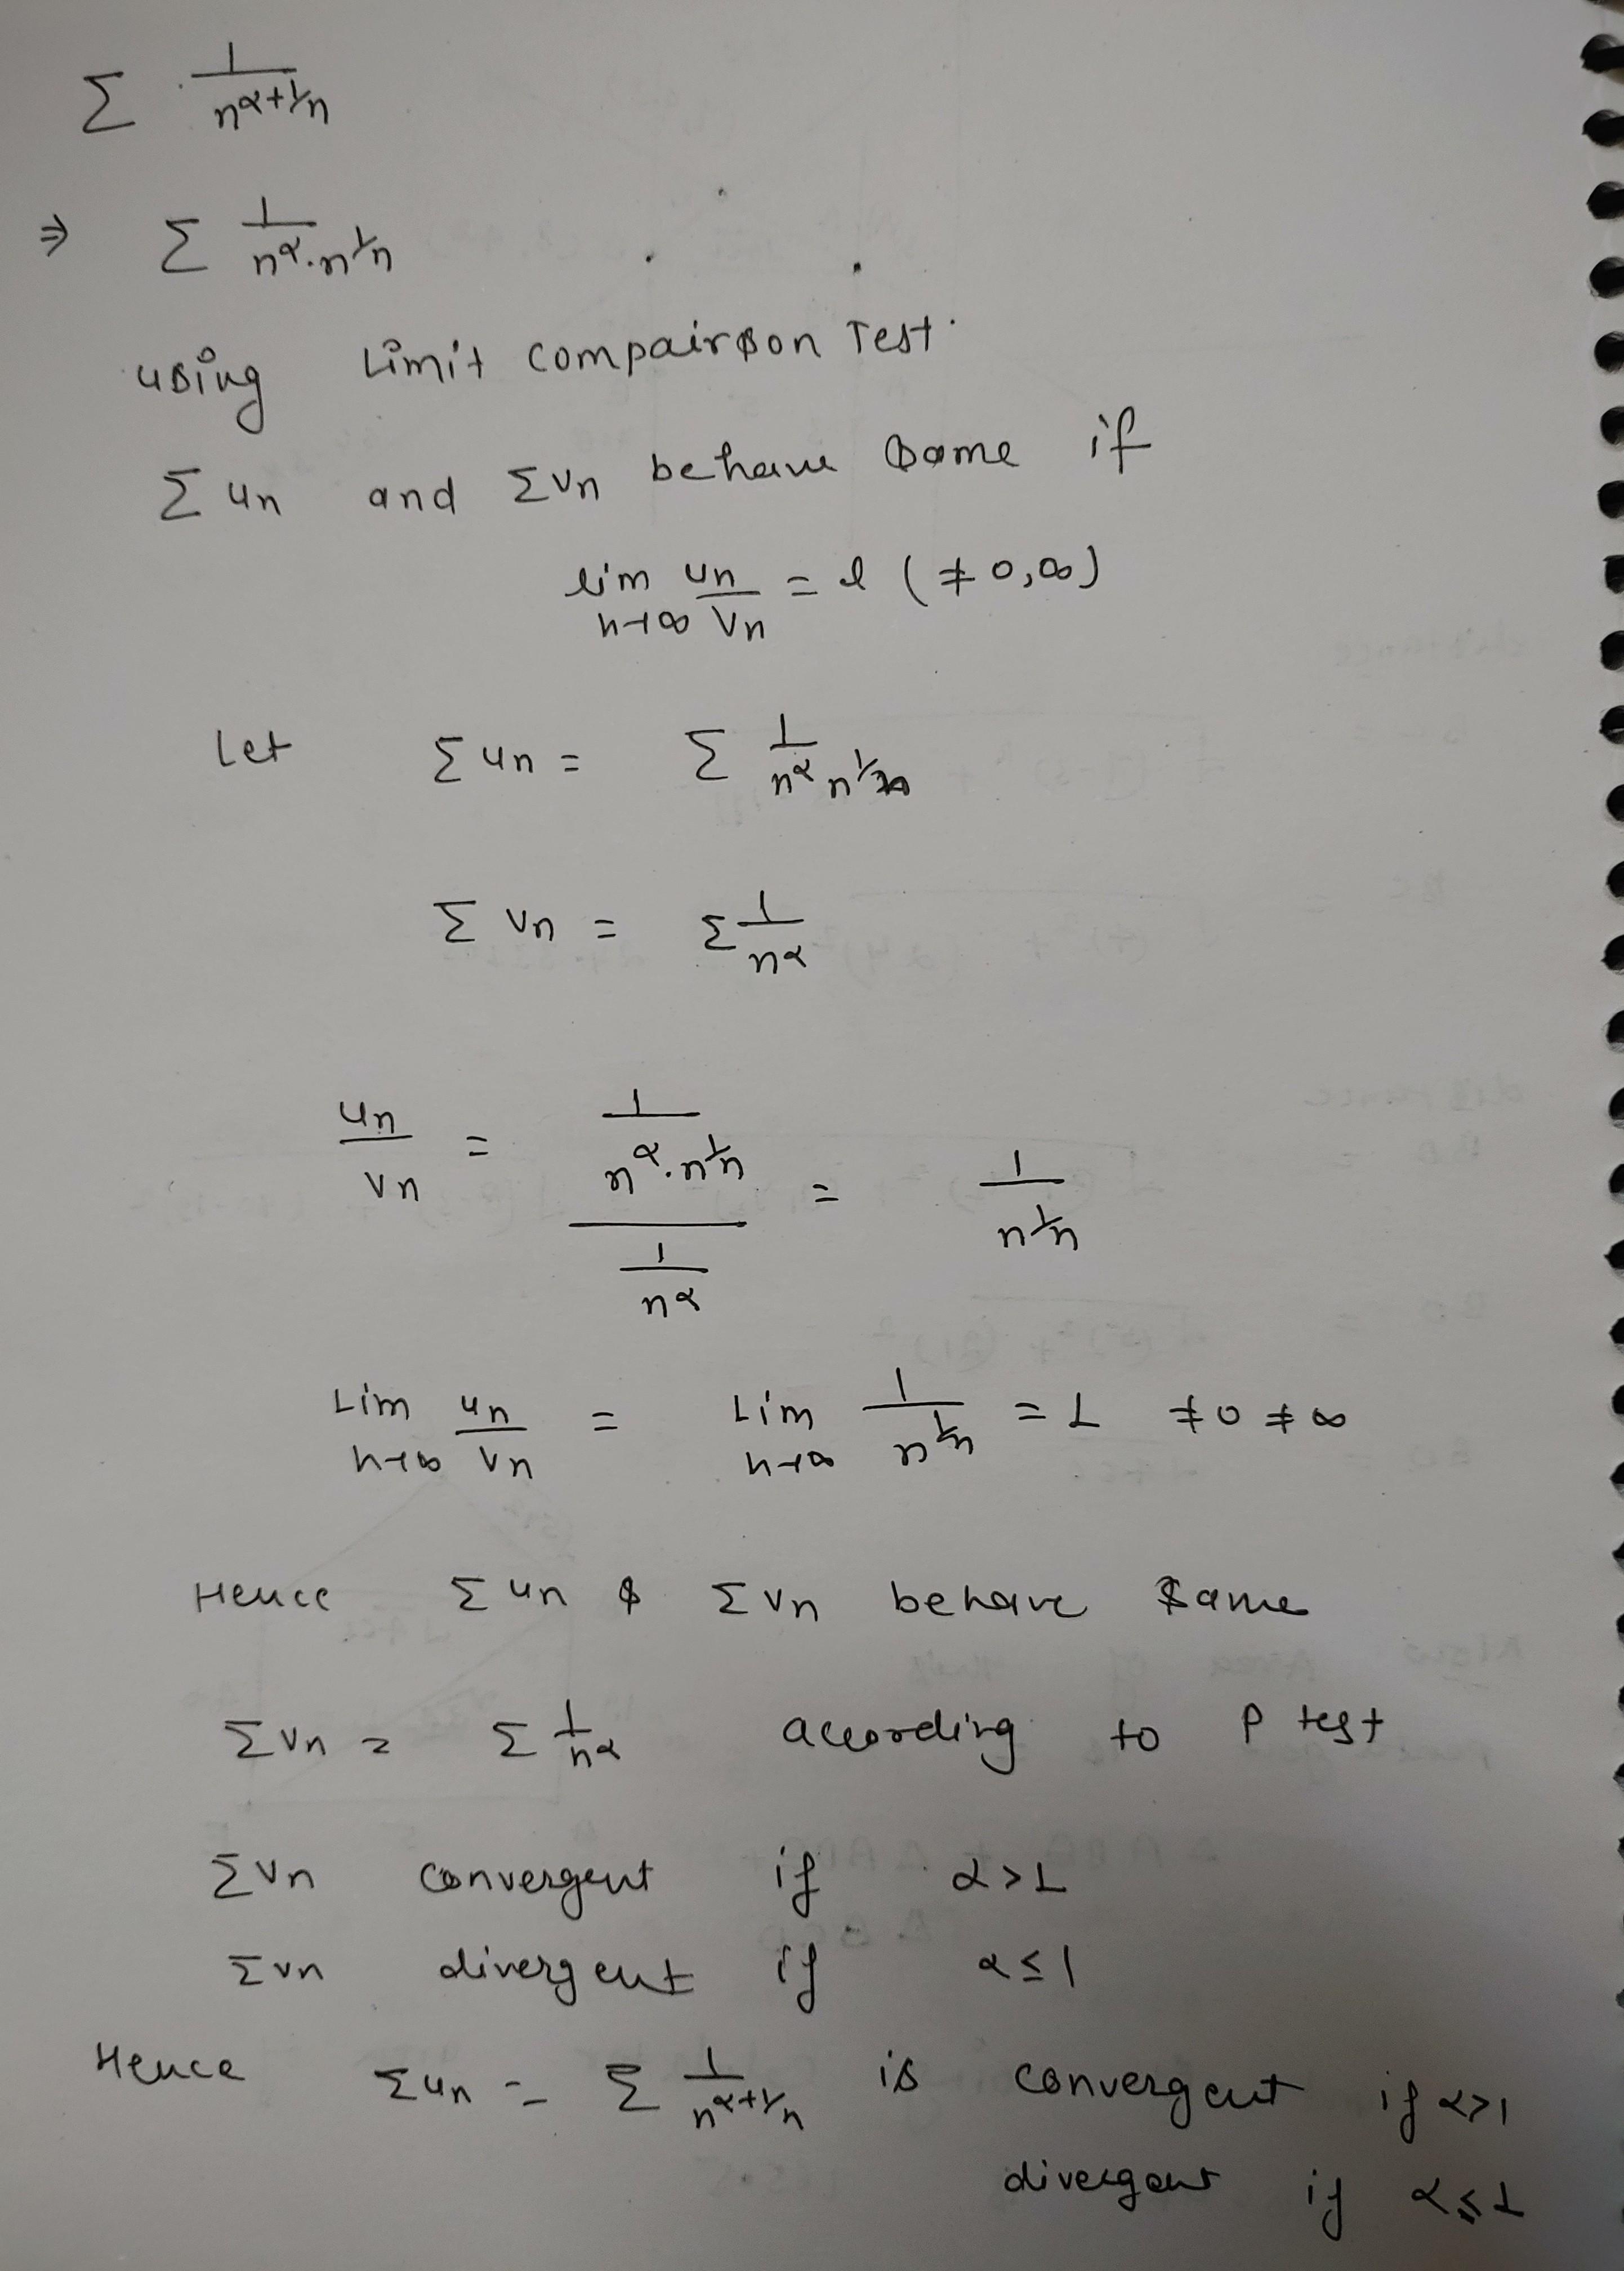 Σ 1/n^(α+1/n)
⇒ Σ 1/(n^α · n^(1/n))
using Limit compairson Test.
Σ un and Σ vn behave same if
lim n→∞ un/vn = l (≠ 0, ∞)
Let Σ un = Σ 1/(n^α n^(1/n))
Σ vn = Σ 1/n^α
un/vn = (1/(n^α · n^(1/n)))/(1/n^α) = 1/n^(1/n)
Lim n→∞ un/vn = Lim n→∞ 1/n^(1/n) = 1 ≠ 0 ≠ ∞
Hence Σ un & Σ vn behave same
Σ vn = Σ 1/n^α according to P test
Σ vn convergent if α > 1
Σ vn divergent if α ≤ 1
Hence Σ un = Σ 1/n^(α+1/n) is convergent if α > 1
divergent if α ≤ 1